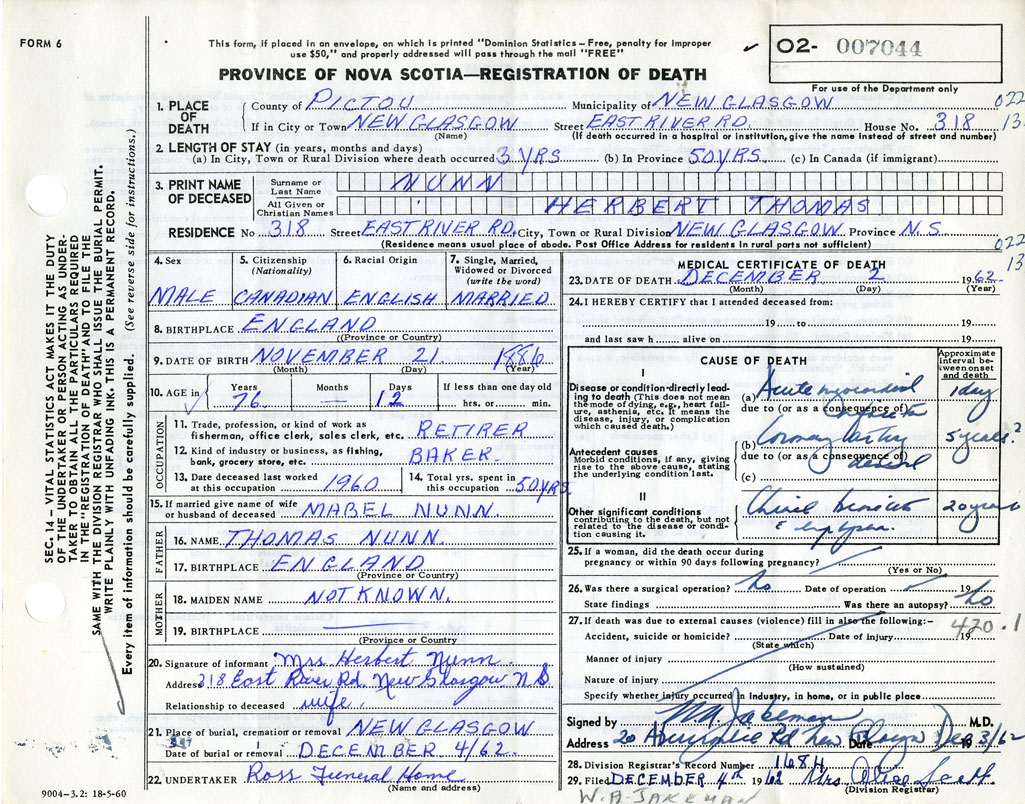 FORM 6
This form, if placed in an envelope, on which is printed "Dominion Statistics – Free, penalty for improper
use $50," and properly addressed will pass through the mail "FREE"
✓ O2- 007044
PROVINCE OF NOVA SCOTIA—REGISTRATION OF DEATH
For use of the Department only
1. PLACE OF DEATH
County of PICTOU Municipality of NEW GLASGOW 022
If in City or Town NEW GLASGOW Street EAST RIVER RD. House No. 318 13.
(Name) (If death occurred in a hospital or institution, give the name instead of street and number)
2. LENGTH OF STAY (in years, months and days)
(a) In City, Town or Rural Division where death occurred 3 YRS (b) In Province 50 YRS. (c) In Canada (if immigrant)
3. PRINT NAME OF DECEASED
Surname or Last Name NUNN
All Given or Christian Names HERBERT THOMAS
RESIDENCE No 318 Street EAST RIVER RD. City, Town or Rural Division NEW GLASGOW. Province N.S.
(Residence means usual place of abode. Post Office Address for residents in rural parts not sufficient)
022
13
4. Sex MALE
5. Citizenship (Nationality) CANADIAN
6. Racial Origin ENGLISH
7. Single, Married, Widowed or Divorced (write the word) MARRIED
8. BIRTHPLACE ENGLAND
(Province or Country)
9. DATE OF BIRTH NOVEMBER 21 1886
(Month) (Day) (Year)
10. AGE in Years 76 Months — Days 12 If less than one day old
hrs. or min.
OCCUPATION
11. Trade, profession, or kind of work as
fisherman, office clerk, sales clerk, etc. RETIRER
12. Kind of industry or business, as fishing,
bank, grocery store, etc. BAKER.
13. Date deceased last worked
at this occupation 1960
14. Total yrs. spent in
this occupation 50 YRS
15. If married give name of wife
or husband of deceased MABEL NUNN
FATHER
16. NAME THOMAS NUNN
17. BIRTHPLACE ENGLAND
(Province or Country)
MOTHER
18. MAIDEN NAME NOT KNOWN.
19. BIRTHPLACE
(Province or Country)
20. Signature of informant Mrs Herbert Nunn
Address 318 East River Rd. New Glasgow N.S
Relationship to deceased wife
21. Place of burial, cremation or removal NEW GLASGOW
Date of burial or removal DECEMBER 4/62
22. UNDERTAKER Ross Funeral Home
(Name and address)
9004-3.2: 18-5-60
MEDICAL CERTIFICATE OF DEATH
23. DATE OF DEATH DECEMBER 2 1962
(Month) (Day) (Year)
24. I HEREBY CERTIFY that I attended deceased from:
19 to 19
and last saw h alive on 19
CAUSE OF DEATH
Approximate interval between onset and death
I
Disease or condition directly leading to death (This does not mean the mode of dying, e.g., heart failure, asthenia, etc. It means the disease, injury, or complication which caused death.)
(a) Acute myocardial 1 day
due to (or as a consequence of)
Antecedent causes
Morbid conditions, if any, giving rise to the above cause, stating the underlying condition last.
(b) Coronary artery 5 years?
due to (or as a consequence of)
(c)
II
Other significant conditions
contributing to the death, but not related to the disease or condition causing it.
20 years
25. If a woman, did the death occur during
pregnancy or within 90 days following pregnancy?
(Yes or No)
26. Was there a surgical operation? no Date of operation 19
State findings Was there an autopsy? no
27. If death was due to external causes (violence) fill in also the following:–
420.1
Accident, suicide or homicide? Date of injury 19
(State which)
Manner of injury
(How sustained)
Nature of injury
Specify whether injury occurred in industry, in home, or in public place
Signed by W.A. Jakeman M.D.
Address 20 Abercrombie Rd New Glasgow Date Dec 3/62
28. Division Registrar's Record Number 1684
29. Filed DECEMBER 4th 1962 Mrs. Alice Scott
(Division Registrar)
W.A. JAKEMAN
SEC. 14 – VITAL STATISTICS ACT MAKES IT THE DUTY
OF THE UNDERTAKER OR PERSON ACTING AS UNDER-
TAKER TO OBTAIN ALL THE PARTICULARS REQUIRED
IN THE "REGISTRATION OF DEATH" AND TO FILE THE
SAME WITH THE DIVISION REGISTRAR WHO SHALL ISSUE THE BURIAL PERMIT.
WRITE PLAINLY WITH UNFADING INK. THIS IS A PERMANENT RECORD.
Every item of information should be carefully supplied. (See reverse side for instructions.)